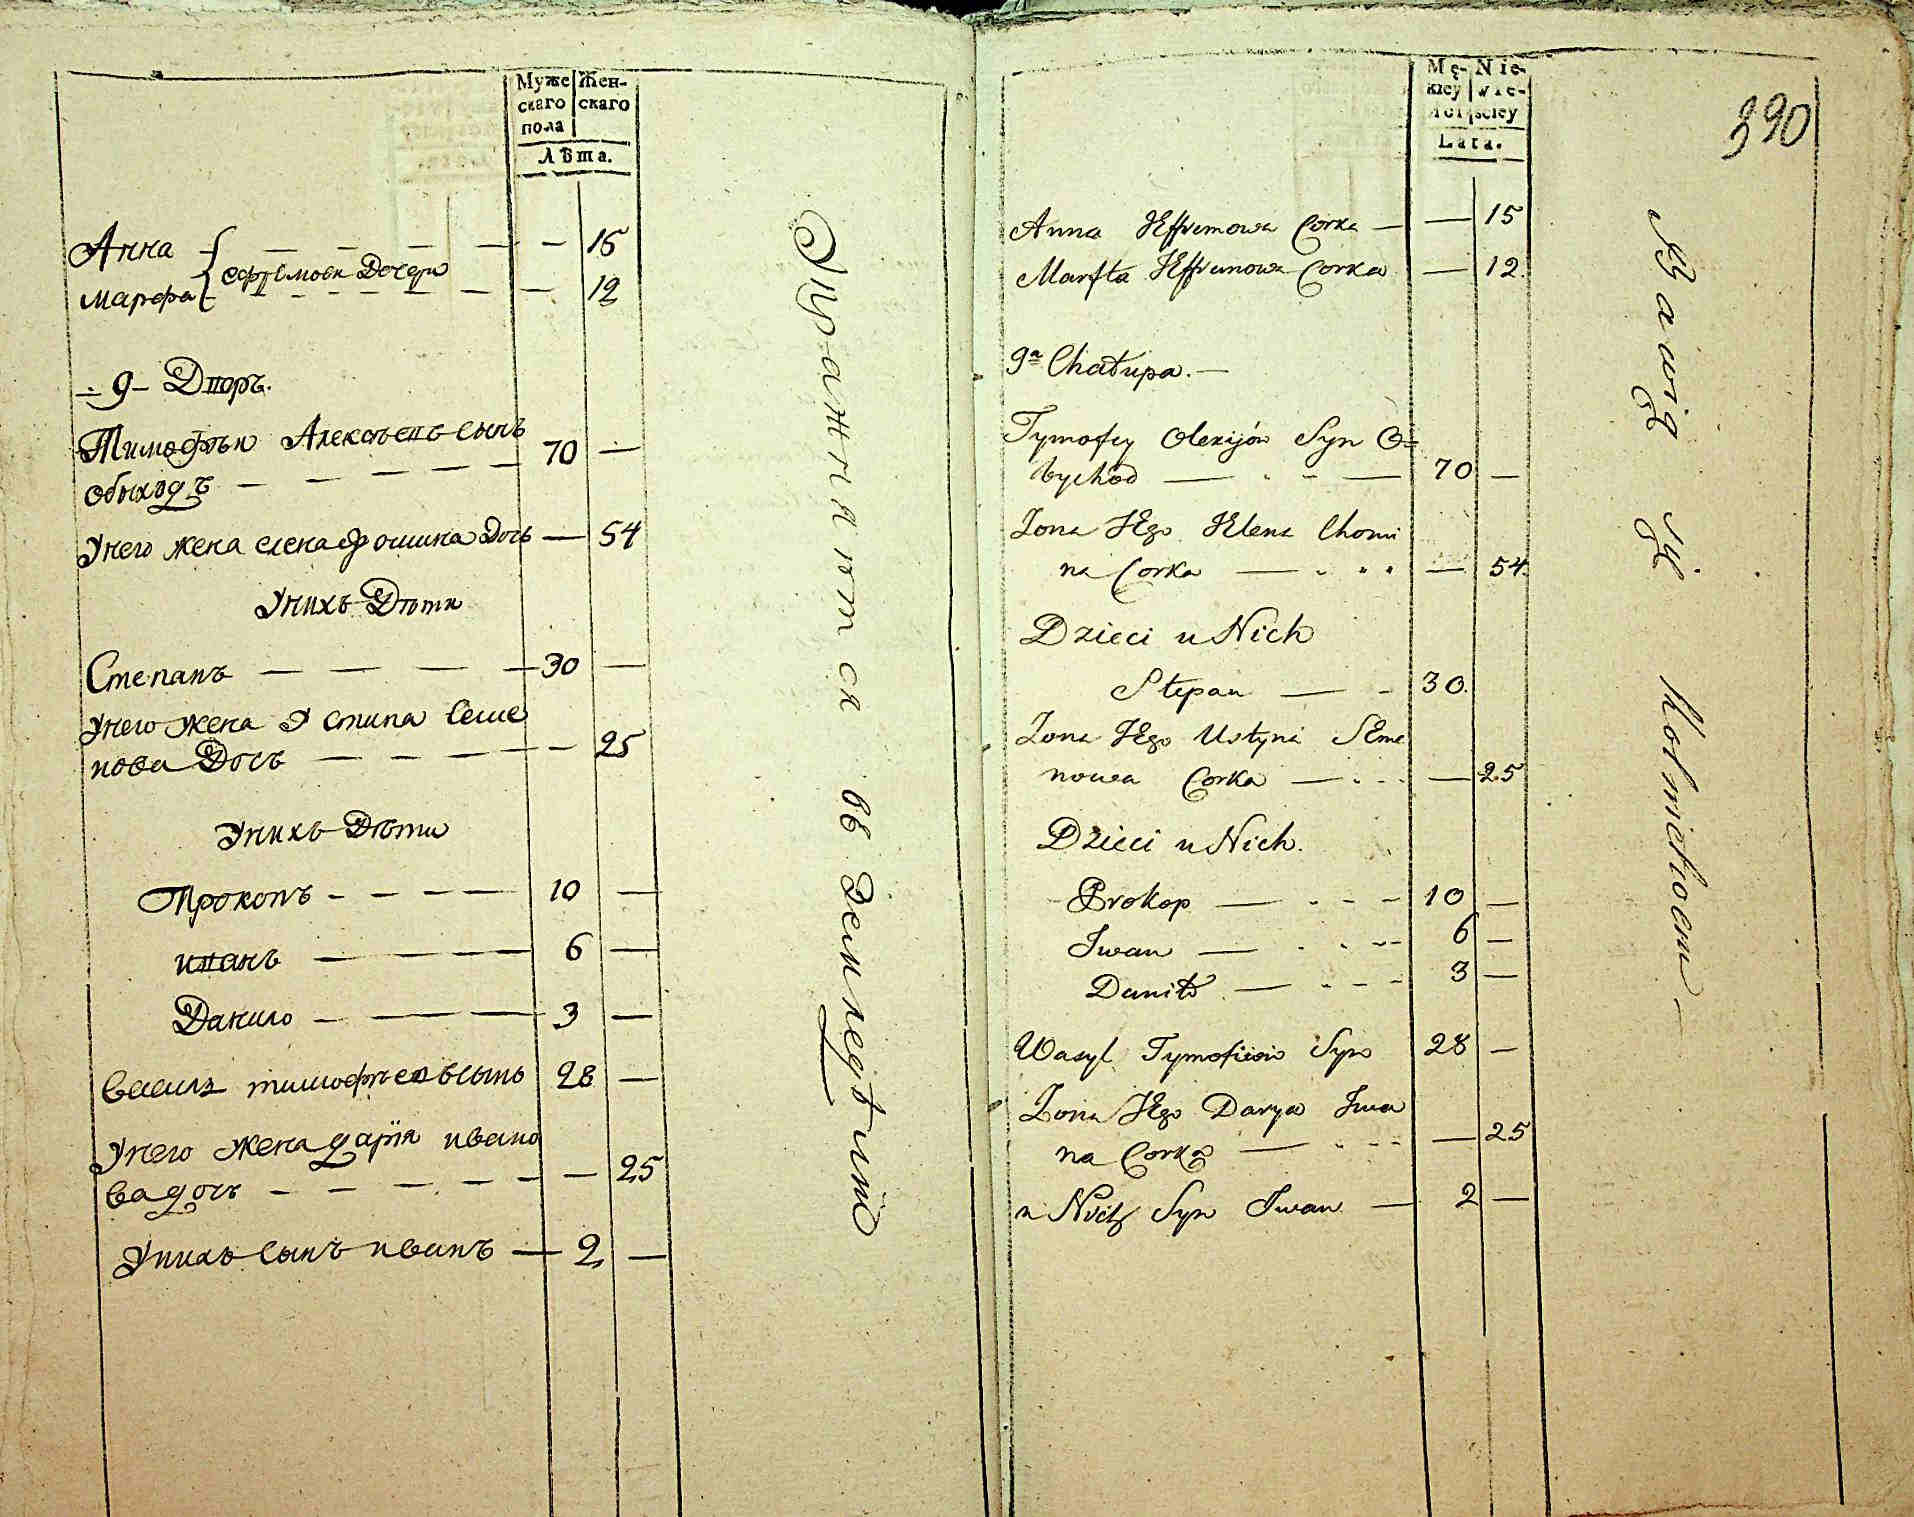 Муже
скаго
пола
Жен-
скаго
Лѣта.
Анна 15
Ефремови Дочери
Марфа 12
9 Дворъ.
Тимофѣй Алексѣевъ сынъ
Обыходъ 70 —
У него жена Елена Фомина дочь — 54
У нихъ Дѣти
Степанъ 30 —
У него жена Устина Семе
нова Дочь — 25
У нихъ Дѣти
Прокопъ 10 —
Иванъ 6 —
Данило 3 —
Василь Тимофѣевъ сынъ 28 —
У него жена Дарія Ивано
ва дочь — 25
У нихъ сынъ Иванъ 2 —
Упражняются въ Земледѣліи
Mę-
skiey
Nie-
wie-
sciey
Lata.
390
Anna JEffremowa Corka — 15
Marfta JEffremowa Corka — 12.
9ª Chałupa.—
Tymofiy Olexijów Syn O=
bychod 70 —
Zona JEgo JElena Chomi
na Corka — 54.
Dzieci u Nich
Stepan 30.
Zona JEgo Ustyna SEme
nowa Corka — 25
Dzieci u Nich.
Prokop 10 —
Jwan 6 —
Daniło 3 —
Wasyl Tymofiiow Syn 28 —
Zona JEgo Darya Jwa
na Corka — 25
u Nich Syn Jwan 2 —
Bawią się Rolnictwem —